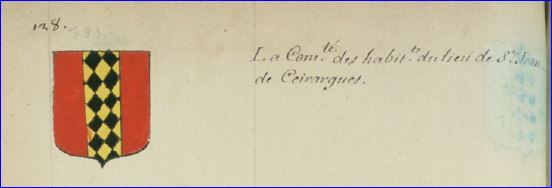 128.
483
La Com.té des habit.ts du lieu de S.t Jean
de Ceirargues.